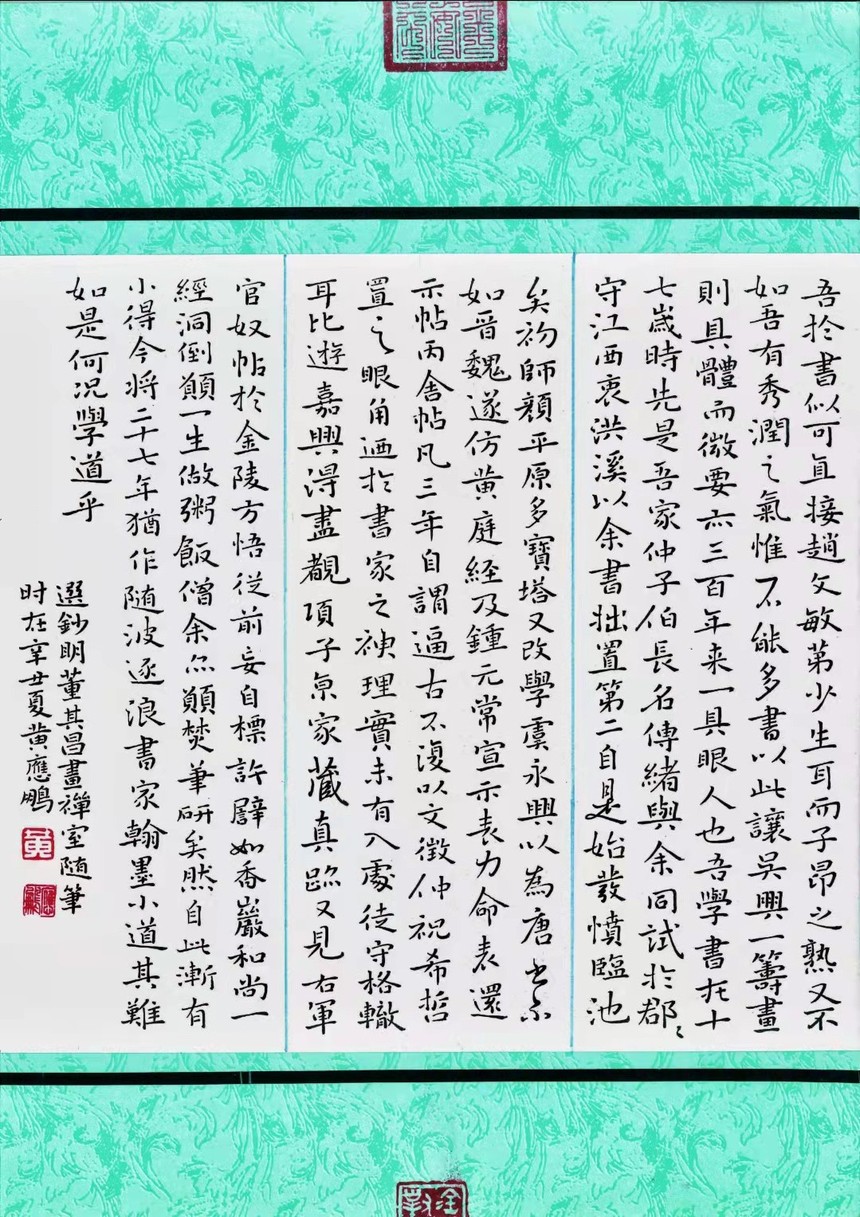 吾於書似可直接趙文敏第少生耳而子昂之熟又不
如吾有秀潤之氣惟不能多書以此讓吳興一籌畫
則具體而微要亦三百年来一具眼人也吾學書在十
七歲時先是吾家仲子伯長名傳緒與余同試於郡〻
守江西衷洪溪以余書拙置第二自是始發憤臨池
矣初師顏平原多寶塔又改學虞永興以為唐書不
如晉魏遂仿黃庭經及鍾元常宣示表力命表還
示帖丙舍帖凡三年自謂逼古不復以文徵仲祝希哲
置之眼角迺於書家之神理實未有入處徒守格轍
耳比遊嘉興得盡覩項子京家藏真跡又見右軍
官奴帖於金陵方悟從前妄自標許譬如香巖和尚一
經洞倒願一生做粥飯僧余亦願焚筆研矣然自此漸有
小得今將二十七年猶作隨波逐浪書家翰墨小道其難
如是何况學道乎
選鈔明董其昌畫禪室随筆
时在辛丑夏黄應鵬
黄